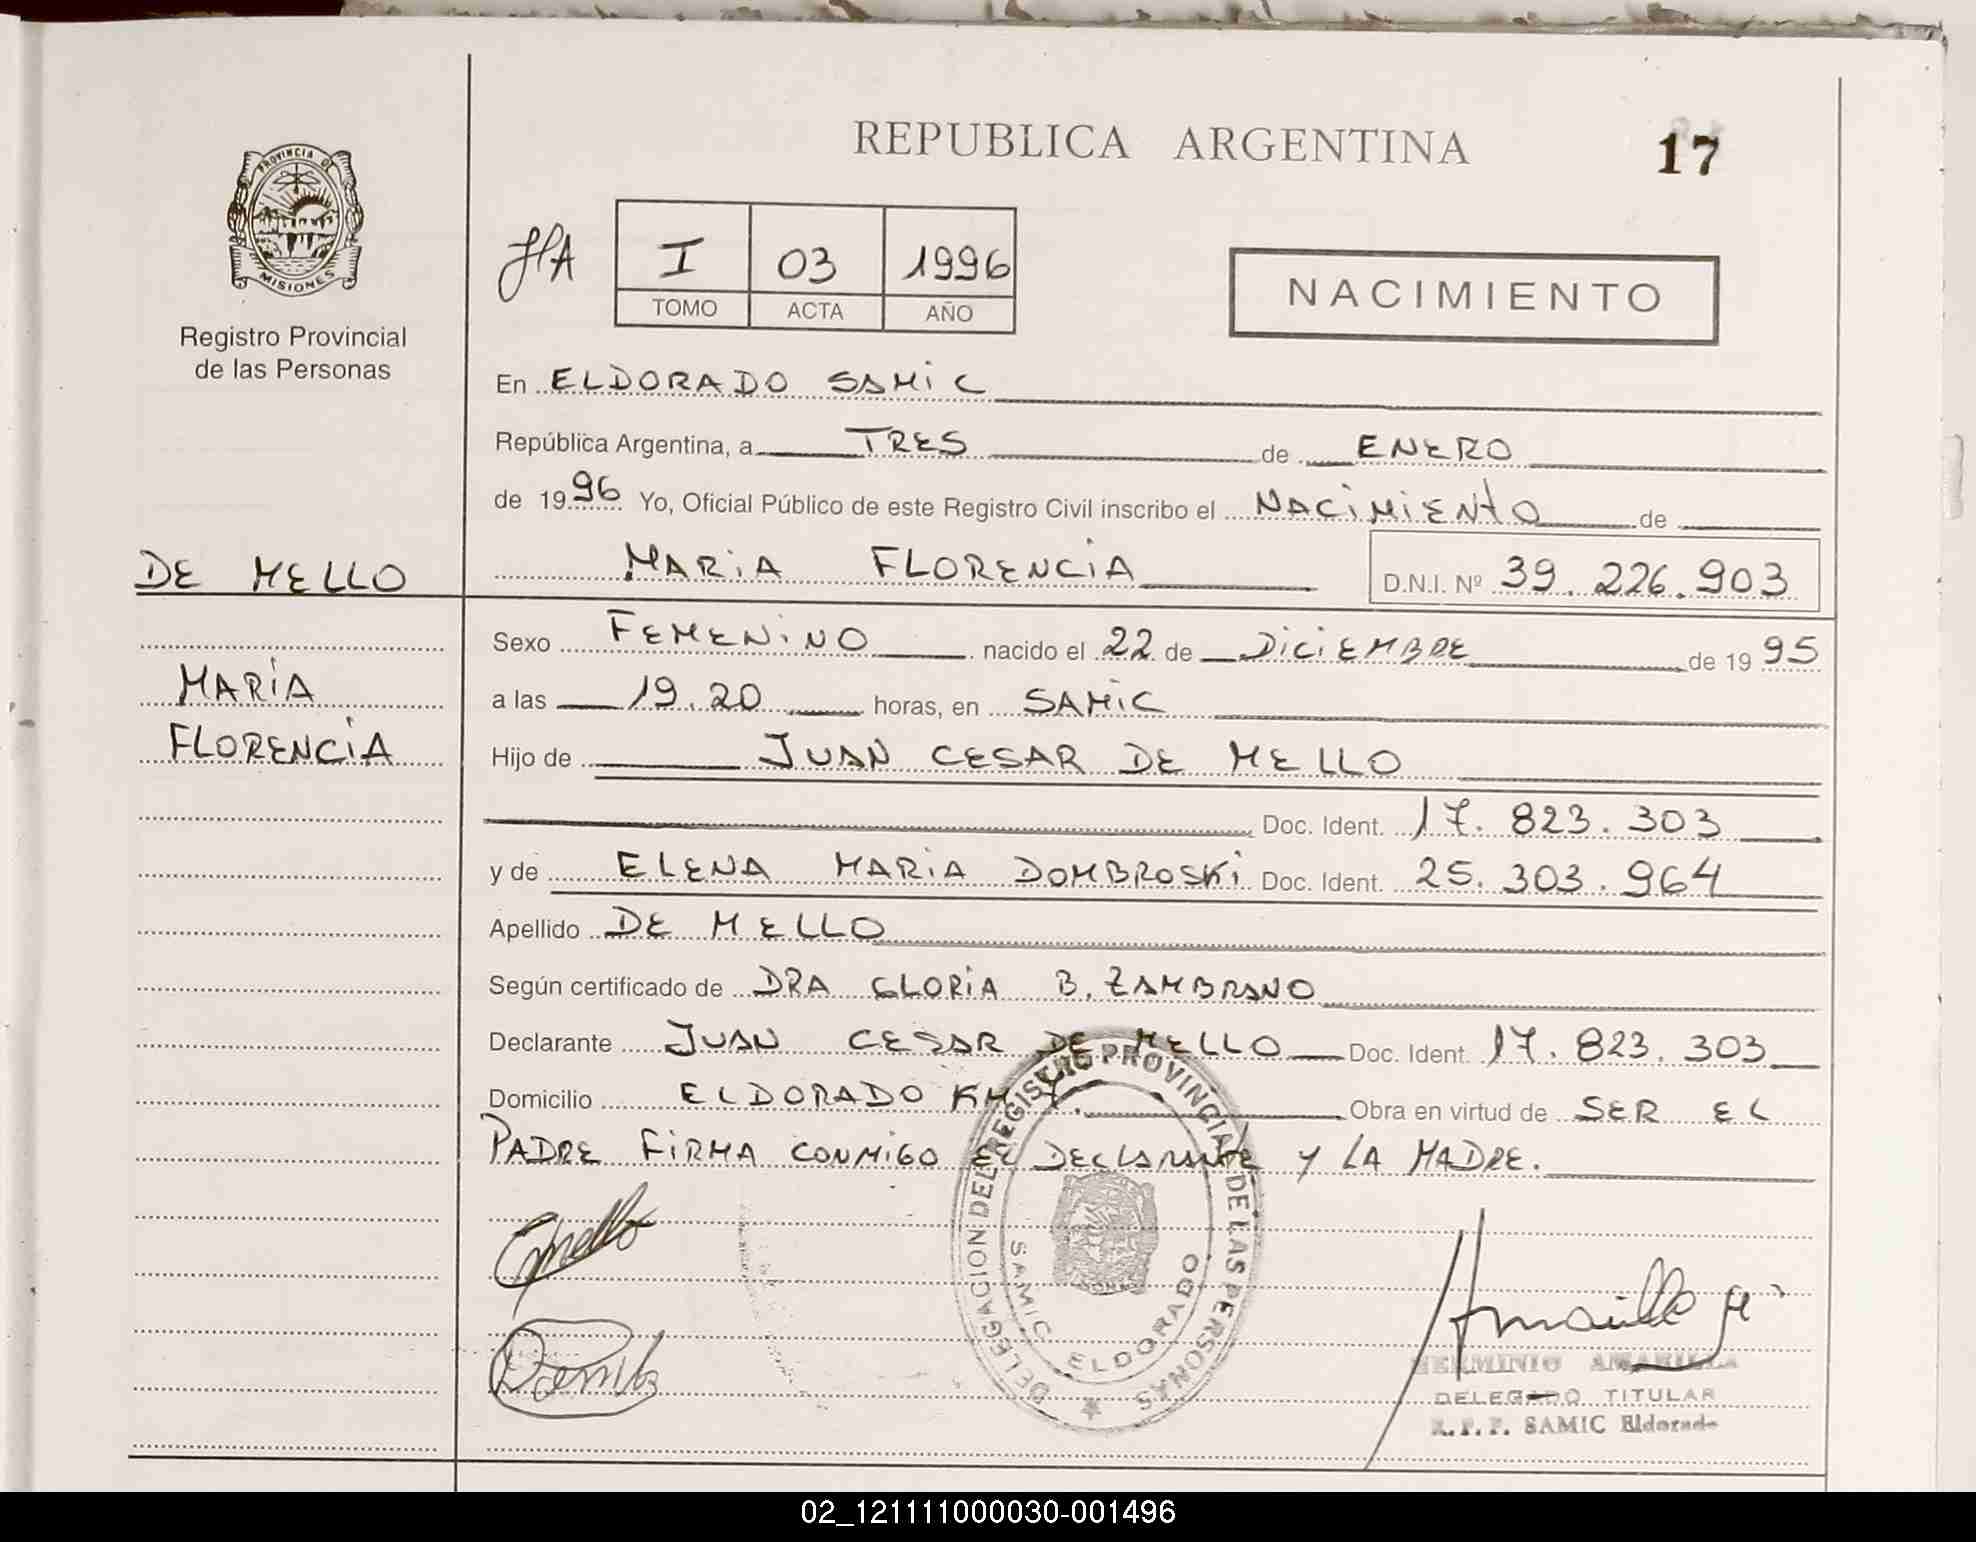 REPUBLICA ARGENTINA
17
PROVINCIA DE
MISIONES
Registro Provincial
de las Personas
I 03 1996
TOMO ACTA AÑO
NACIMIENTO
En ELDORADO SAMIC
República Argentina, a TRES de ENERO
de 1996 Yo, Oficial Público de este Registro Civil inscribo el NACIMIENTO de
DE MELLO
MARIA FLORENCIA D.N.I. Nº 39.226.903
Sexo FEMENINO nacido el 22 de DICIEMBRE de 1995
MARIA
a las 19.20 horas, en SAMIC
FLORENCIA
Hijo de JUAN CESAR DE MELLO
Doc. Ident. 17.823.303
y de ELENA MARIA DOMBROSKI Doc. Ident. 25.303.964
Apellido DE MELLO
Según certificado de DRA GLORIA B. ZAMBRANO
Declarante JUAN CESAR DE MELLO Doc. Ident. 17.823.303
Domicilio ELDORADO KM Obra en virtud de SER EL
PADRE FIRMA CONMIGO EL DECLARANTE Y LA MADRE.
DELEGACION DEL REGISTRO PROVINCIAL DE LAS PERSONAS
SAMIC ELDORADO
HERMINIO AMARILLA
DELEGADO TITULAR
R.P.P. SAMIC Eldorado
02_121111000030-001496